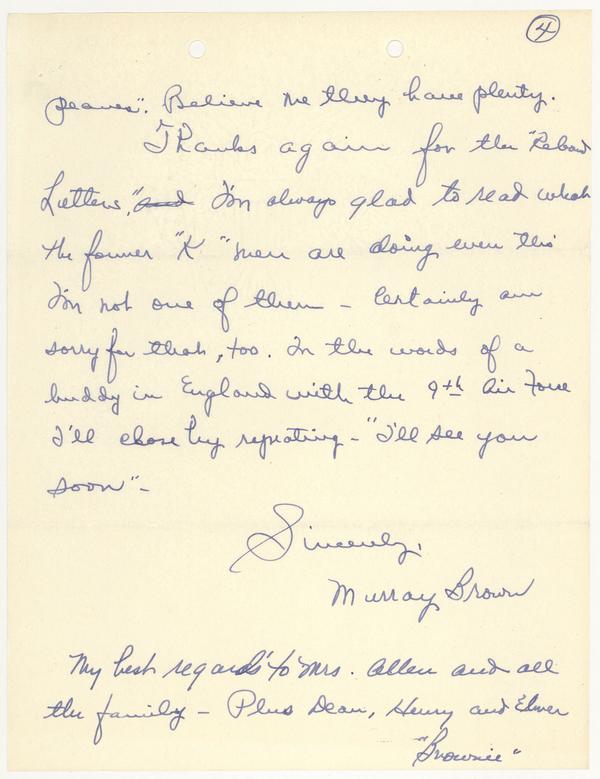 4
peaves". Believe me they have plenty.
Thanks again for the "Rebow
Letters", and I'm always glad to read what
the former "K" men are doing even tho
I'm not one of them - Certainly am
sorry for that, too. In the words of a
buddy in England with the 9th Air Force
I'll close by repeating - "I'll see you
soon" -
Sincerely,
Murray Brown
My best regards to Mrs. Allen and all
the family - Plus Dean, Henry and Elmer
"Brownie"